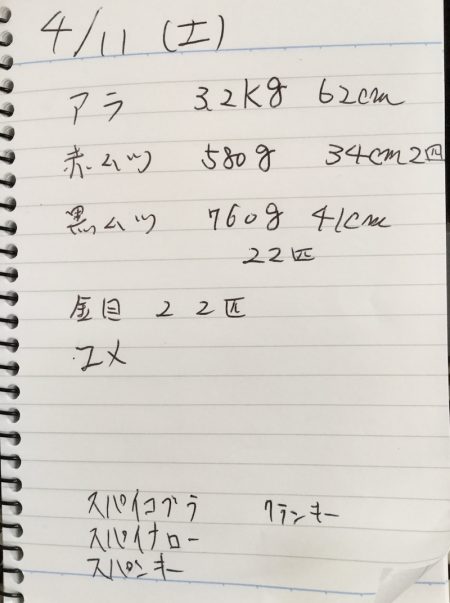 4/11 (土)
アラ 3.2kg 62cm
赤ムツ 580g 34cm2匹
黒ムツ 760g 41cm
22匹
金目 22匹
ユメ
スパイコブラ クランキー
スパイナロー
スパンキー